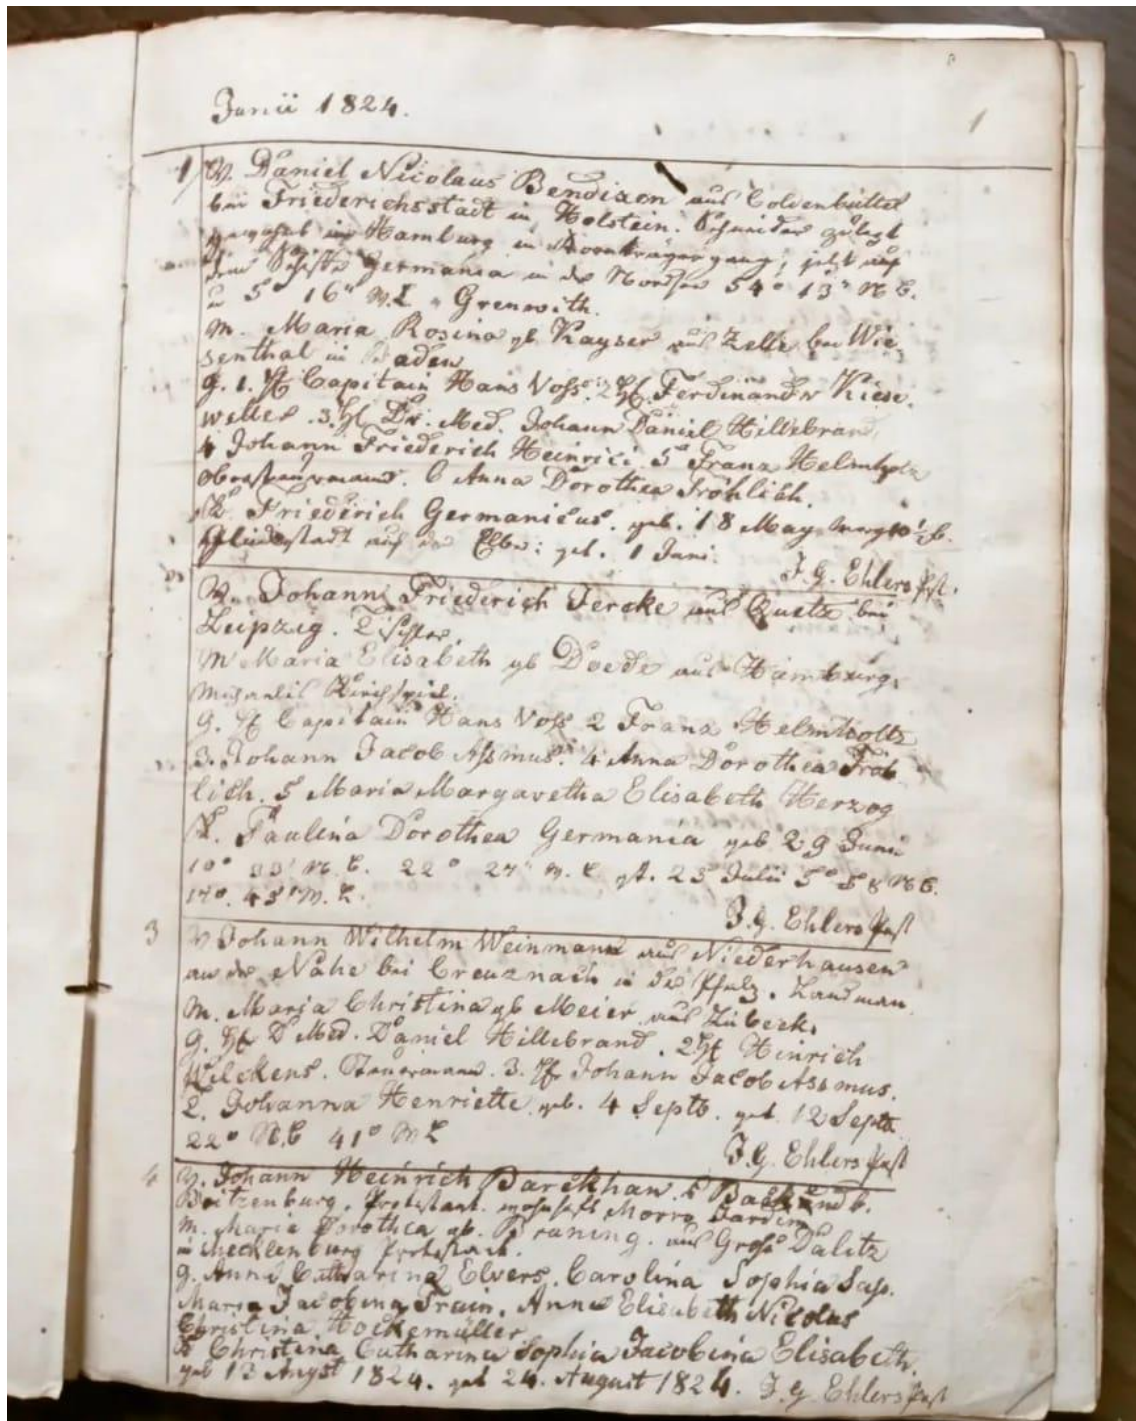 Junii 1824.
1
1 V. Daniel Nicolaus Bendixen aus Coldenbüttel
bei Friederichsstadt in Holstein. Schneider zuletzt
in Hamburg in jetzt auf
dem Schiffe Germania in der Nordsee 54° 13" N B.
u 5° 16" W. L Grenwith.
M. Maria Rosina gb Kayser aus Zelle bei Wie
senthal in Baden
G. 1. H Capitain Hans Voss. 2 H. Ferdinand Kiese.
wetter. 3. H Dr. Med. Johann Daniel Hillebrand.
4 Johann Friederich Heinrici 5 Franz Helmholz
Obersteuermann. 6 Anna Dorothea Fröhlich.
K. Friederich Germanicus. geb. 18 May
Glückstadt auf der Elbe: get. 1 Juni.
J. G. Ehlers Past.
V. Johann Friederich Jercke aus Quetz bei
Leipzig. Tischler.
M Maria Elisabeth gb Doede aus Hamburg.
Michaelis Kirchspiel.
G. H Capitain Hans Voss 2 Franz Helmholtz
3. Johann Jacob Assmus. 4 Anna Dorothea Fröh
lich. 5 Maria Margaretha Elisabeth Herzog
K. Paulina Dorothea Germania geb 29 Junii
10° 33' N. B. 22° 27" W. L gt. 25 Julii 5° 58 N B.
W. L.
J. G. Ehlers Past
3 V Johann Wilhelm Weinmann aus Niederhausen
an der Nahe bei Creuznach in der Pfalz. Landman
M. Maria Christina gb Meier aus Lübeck.
G. H D Med. Daniel Hillebrand. 2 H Hinrich
Wilckens. Steuermann. 3. H Johann Jacob Assmus.
T. Johanna Henriette geb. 4 Septb. get 12 Septb
22° N. B 41° W L
J. G. Ehlers Past
4 V. Johann Heinrich Barckhan
Boitzenburg. Protestant. wohnhaft Morro
M. Maria Dorothea gb. Braning. aus Gross Dalitz
in Mecklenburg Protestant.
G. Anna Catharina Elvers. Carolina Sophia
Maria Jacobina Train. Anna Elisabeth Nicolas
Christina Hockemüller
K Christina Catharina Sophia Jacobina Elisabeth.
geb 13 Augst 1824. get 24. August 1824. J. G. Ehlers Past